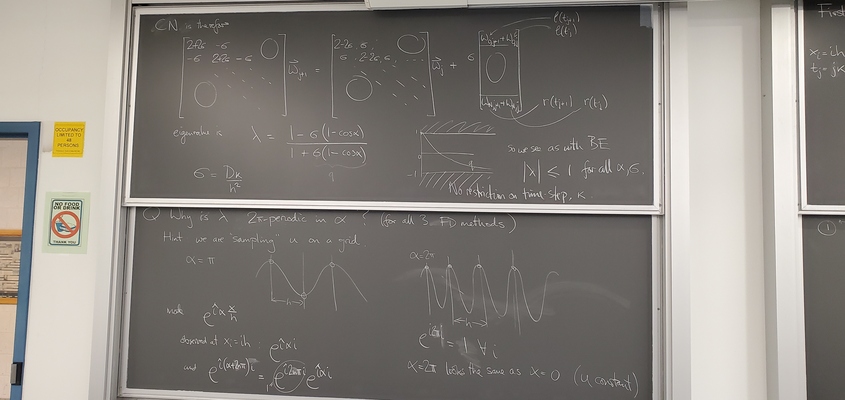 CN is therefore
2+2σ -σ
-σ 2+2σ -σ
w⃗j+1 =
2-2σ σ
σ 2-2σ σ
w⃗j + σ
l(tj+1)
l(tj)
r(tj+1) r(tj)
eigenvalue is λ = 1 - σ(1-cosα) / 1 + σ(1-cosα)
σ = Dk / h²
1
-1
So we see as with BE
|λ| ≤ 1 for all α, σ.
No restriction on time-step, k
Q Why is λ 2π-periodic in α ? (for all 3 FD methods)
Hint we are "sampling" u on a grid
α = π
h
α = 2π
h
mode e^{iα x/h}
observed at xi = ih: e^{iαi}
and e^{i(α+2π)i} = e^{i2πi} e^{iαi}
= 1 ∀ i
α = 2π looks the same as α = 0 (u constant)
First
xi = ih
tj = jk
①
OCCUPANCY
LIMITED TO
48
PERSONS
NO FOOD
OR DRINK
THANK YOU